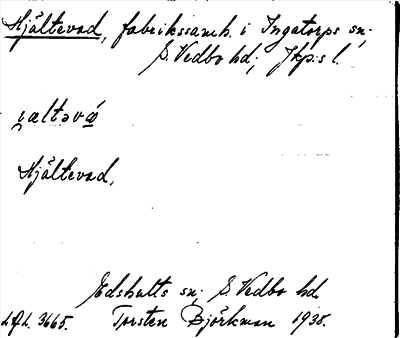 Hjältevad, fabrikssamh. i Ingatorps sn;
S. Vedbo hd; Jkp:s l.
i̯æltəvá
Hjältevad,
Edshults sn; S Vedbo hd.
Torsten Björkman 1938.